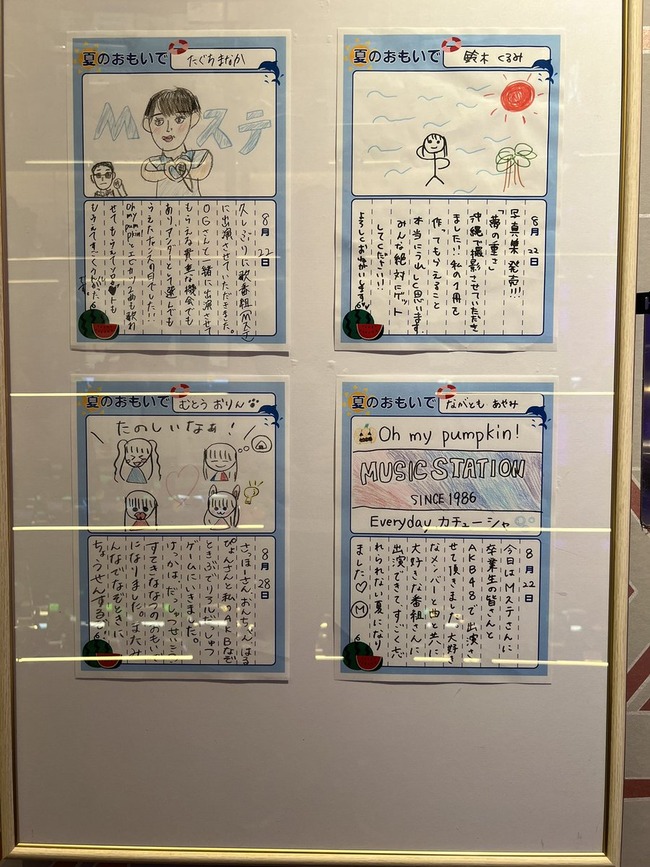 夏のおもいで
たぐちまなか
Mステ
8月22日
久しぶりに歌番組(Mステ)
に出演させていただきました。
OGさんと一緒に出演させて
もらえる貴重な機会でも
あり、アンダーとして選んでも
うえたなんて
Oh my pumpkin!
夏のおもいで
鈴木くるみ
8月22日
写真集発売!!!
「夢の重さ」
沖縄で撮影させていただき
ました!!私の1冊を
作ってもらえること
本当にうれしく思います
みんな絶対にゲット
してください!!
よろしくお願いします
夏のおもいで
むとう おりん
たのしいなぁ!
8月28日
さっほーさん、おんちゃん、はる
ぴょんさんと私、AKBなぞ
ときぶでリアルだっしゅつ
ゲームにいきました。
けっかは、だっしゅつせいこう
すてきななつのおもいで
になりました。またみ
んなでなぞときに
ちょうせんするぞ!
夏のおもいで
ながとも あやみ
Oh my pumpkin!
MUSIC STATION
SINCE 1986
Everyday カチューシャ
8月22日
今日はMステさんに
卒業生の皆さんと
AKB48で出演さ
せて頂きました。大好き
なメンバーと
大好きな番組さんに
出演できてすごく忘
れられない夏になり
ました♡Ⓜ